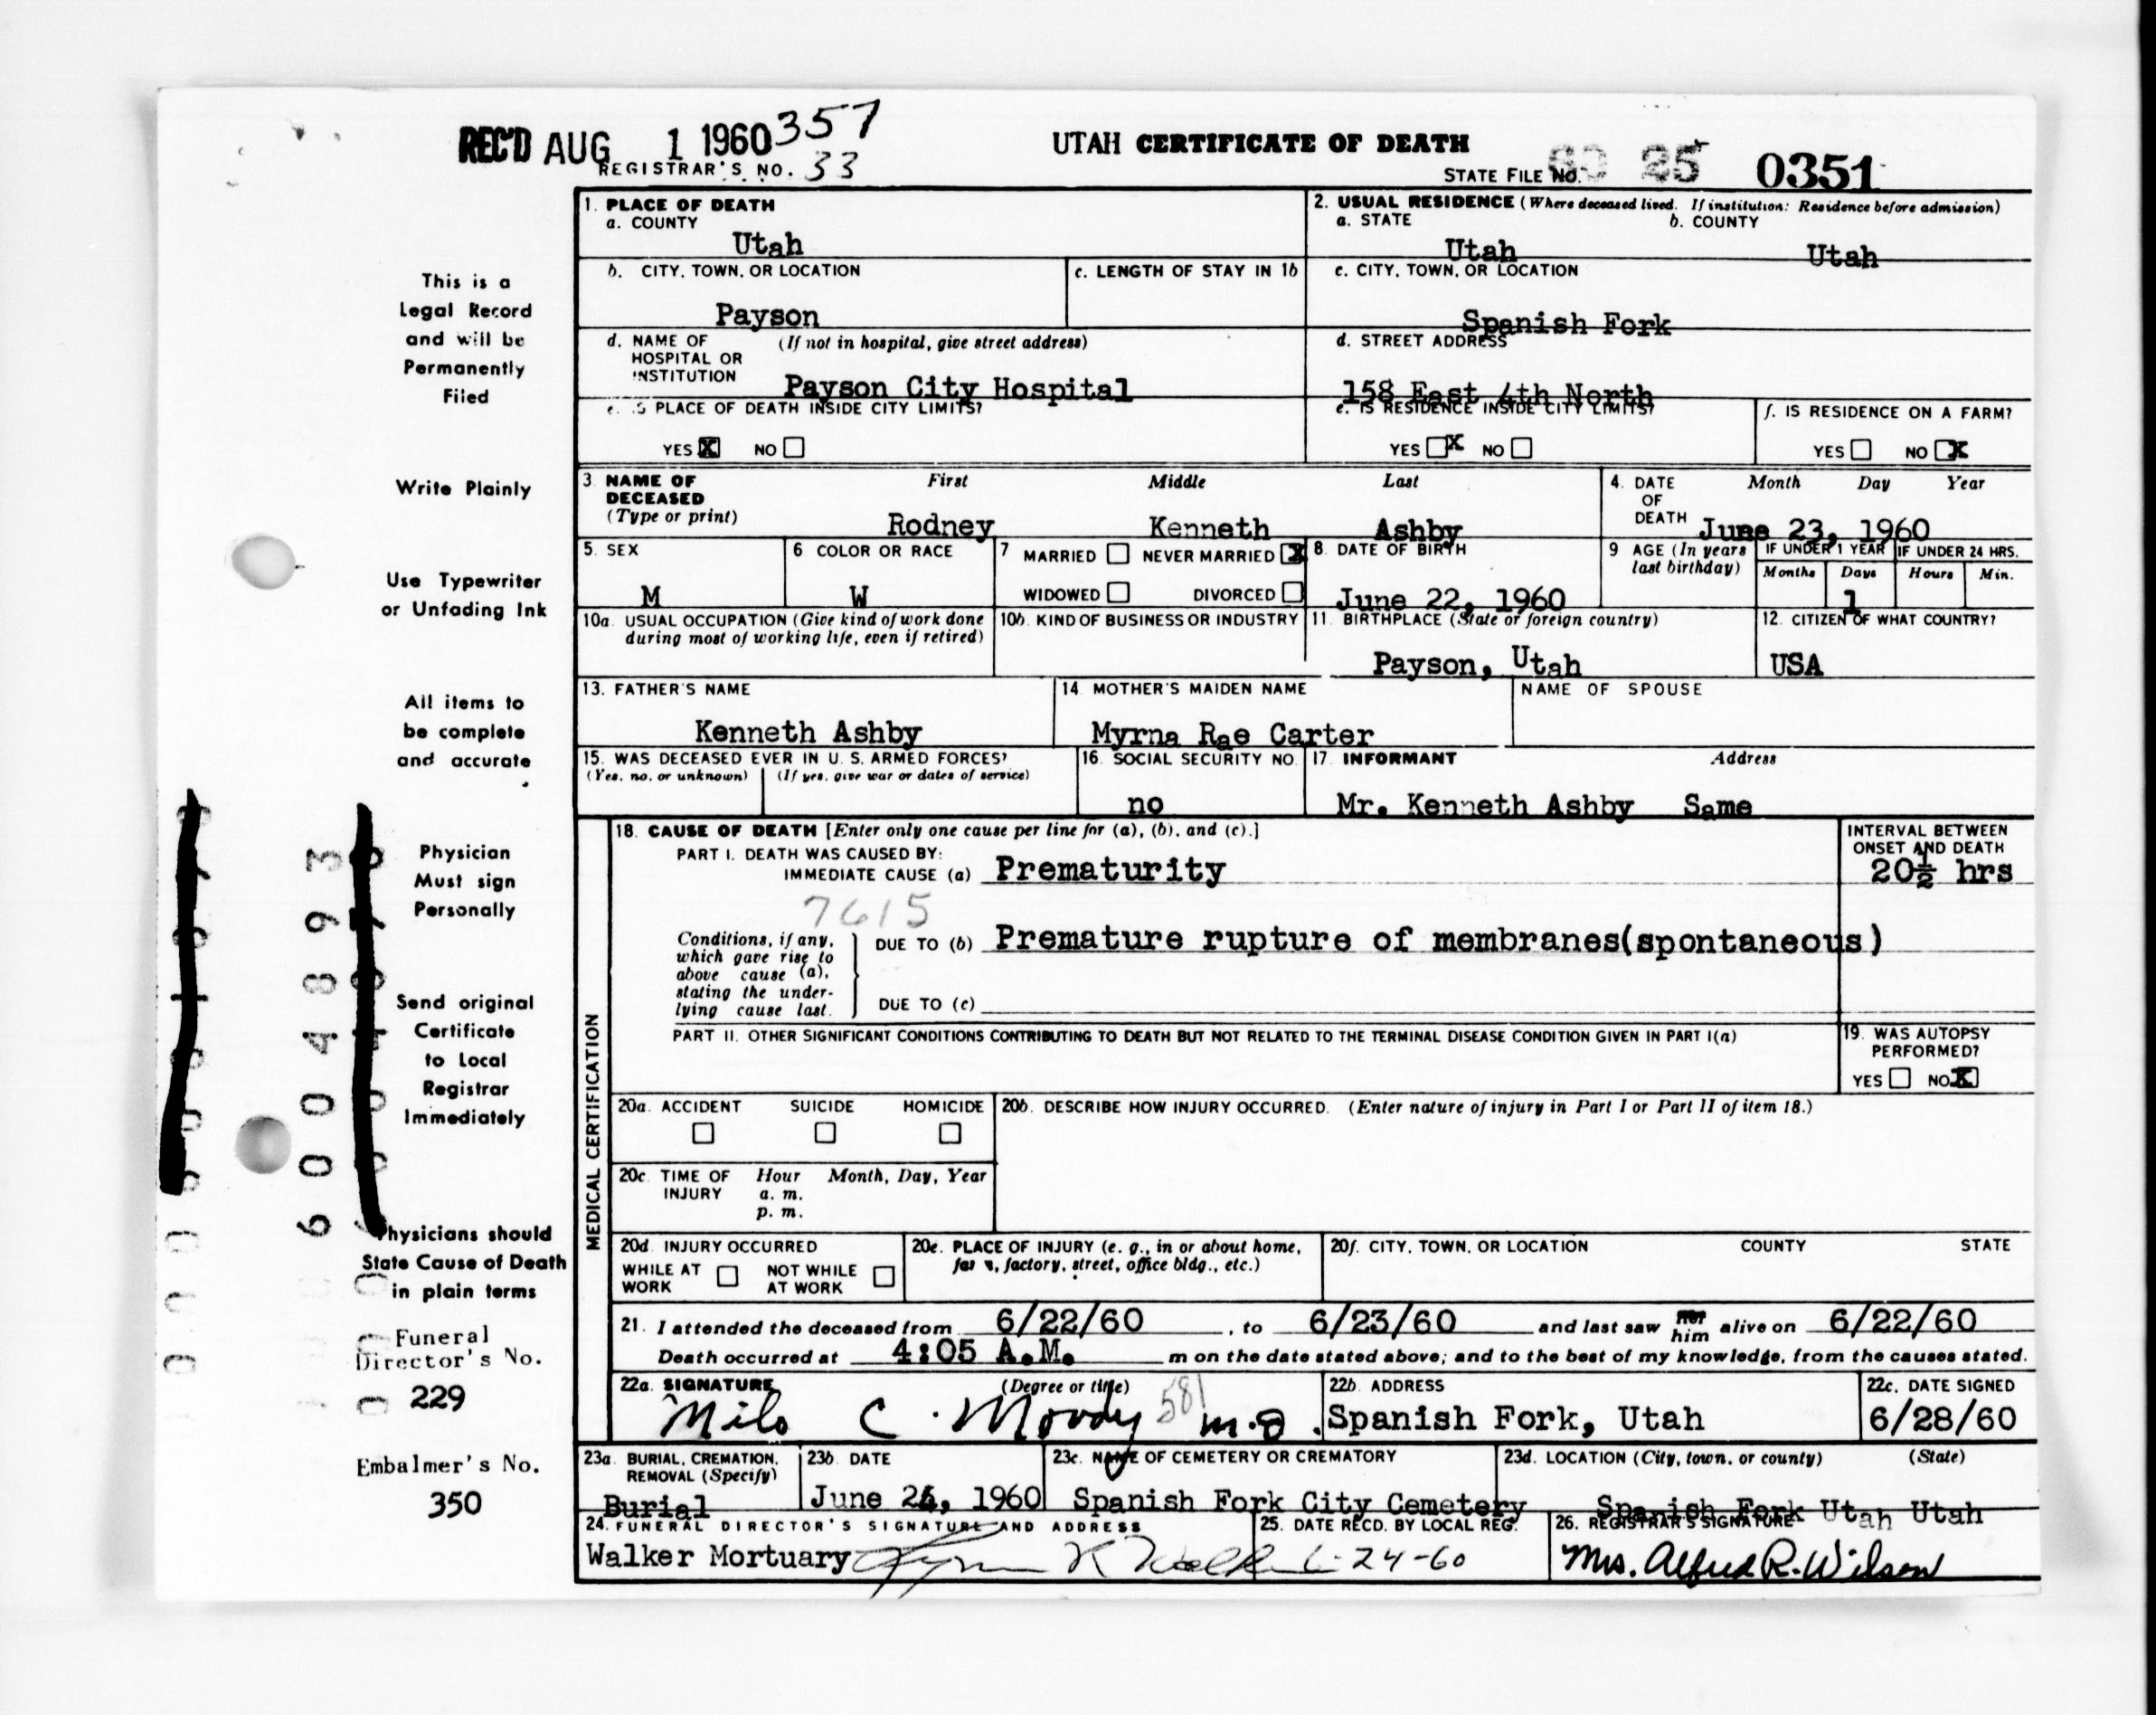 REC'D AUG 1 1960 357
REGISTRAR'S NO. 33
UTAH CERTIFICATE OF DEATH
STATE FILE NO. 25 0351
This is a
Legal Record
and will be
Permanently
Filed
Write Plainly
Use Typewriter
or Unfading Ink
All items to
be complete
and accurate
Physician
Must sign
Personally
Send original
Certificate
to Local
Registrar
Immediately
Physicians should
State Cause of Death
in plain terms
Funeral
Director's No.
229
Embalmer's No.
350
6004893
1. PLACE OF DEATH
a. COUNTY
Utah
2. USUAL RESIDENCE (Where deceased lived. If institution: Residence before admission)
a. STATE b. COUNTY
Utah Utah
b. CITY, TOWN, OR LOCATION c. LENGTH OF STAY IN 1b
Payson
c. CITY, TOWN, OR LOCATION
Spanish Fork
d. NAME OF (If not in hospital, give street address)
HOSPITAL OR
INSTITUTION Payson City Hospital
d. STREET ADDRESS
158 East 4th North
e. IS PLACE OF DEATH INSIDE CITY LIMITS?
YES X NO
e. IS RESIDENCE INSIDE CITY LIMITS?
YES X NO
f. IS RESIDENCE ON A FARM?
YES NO X
3. NAME OF DECEASED (Type or print) First Middle Last
Rodney Kenneth Ashby
4. DATE OF DEATH Month Day Year
June 23, 1960
5. SEX
M
6 COLOR OR RACE
W
7 MARRIED NEVER MARRIED X
WIDOWED DIVORCED
8. DATE OF BIRTH
June 22, 1960
9 AGE (In years last birthday)
IF UNDER 1 YEAR IF UNDER 24 HRS.
Months Days Hours Min.
1
10a. USUAL OCCUPATION (Give kind of work done
during most of working life, even if retired)
10b. KIND OF BUSINESS OR INDUSTRY
11. BIRTHPLACE (State or foreign country)
Payson, Utah
12. CITIZEN OF WHAT COUNTRY?
USA
13. FATHER'S NAME
Kenneth Ashby
14 MOTHER'S MAIDEN NAME
Myrna Rae Carter
NAME OF SPOUSE
15. WAS DECEASED EVER IN U. S. ARMED FORCES?
(Yes, no, or unknown) (If yes, give war or dates of service)
16. SOCIAL SECURITY NO.
no
17. INFORMANT Address
Mr. Kenneth Ashby Same
MEDICAL CERTIFICATION
18. CAUSE OF DEATH [Enter only one cause per line for (a), (b), and (c).]
INTERVAL BETWEEN
ONSET AND DEATH
PART I. DEATH WAS CAUSED BY:
IMMEDIATE CAUSE (a) Prematurity 20½ hrs
7615
Conditions, if any,
which gave rise to
above cause (a),
stating the under-
lying cause last.
DUE TO (b) Premature rupture of membranes(spontaneous)
DUE TO (c)
PART II. OTHER SIGNIFICANT CONDITIONS CONTRIBUTING TO DEATH BUT NOT RELATED TO THE TERMINAL DISEASE CONDITION GIVEN IN PART I(a)
19. WAS AUTOPSY
PERFORMED?
YES NO X
20a. ACCIDENT SUICIDE HOMICIDE
20b. DESCRIBE HOW INJURY OCCURRED. (Enter nature of injury in Part I or Part II of item 18.)
20c. TIME OF INJURY Hour Month, Day, Year
a. m.
p. m.
20d. INJURY OCCURRED
WHILE AT WORK NOT WHILE AT WORK
20e. PLACE OF INJURY (e. g., in or about home,
factory, street, office bldg., etc.)
20f. CITY, TOWN, OR LOCATION COUNTY STATE
21. I attended the deceased from 6/22/60, to 6/23/60 and last saw her him alive on 6/22/60
Death occurred at 4:05 A.M. m on the date stated above; and to the best of my knowledge, from the causes stated.
22a. SIGNATURE (Degree or title)
Milo C. Moody 581 M.D.
22b. ADDRESS
Spanish Fork, Utah
22c. DATE SIGNED
6/28/60
23a. BURIAL, CREMATION,
REMOVAL (Specify)
Burial
23b. DATE
June 24, 1960
23c. NAME OF CEMETERY OR CREMATORY
Spanish Fork City Cemetery
23d. LOCATION (City, town, or county) (State)
Spanish Fork Utah Utah
24. FUNERAL DIRECTOR'S SIGNATURE AND ADDRESS
Walker Mortuary
25. DATE RECD. BY LOCAL REG.
6-24-60
26. REGISTRAR'S SIGNATURE
Mrs. Alfred R. Wilson